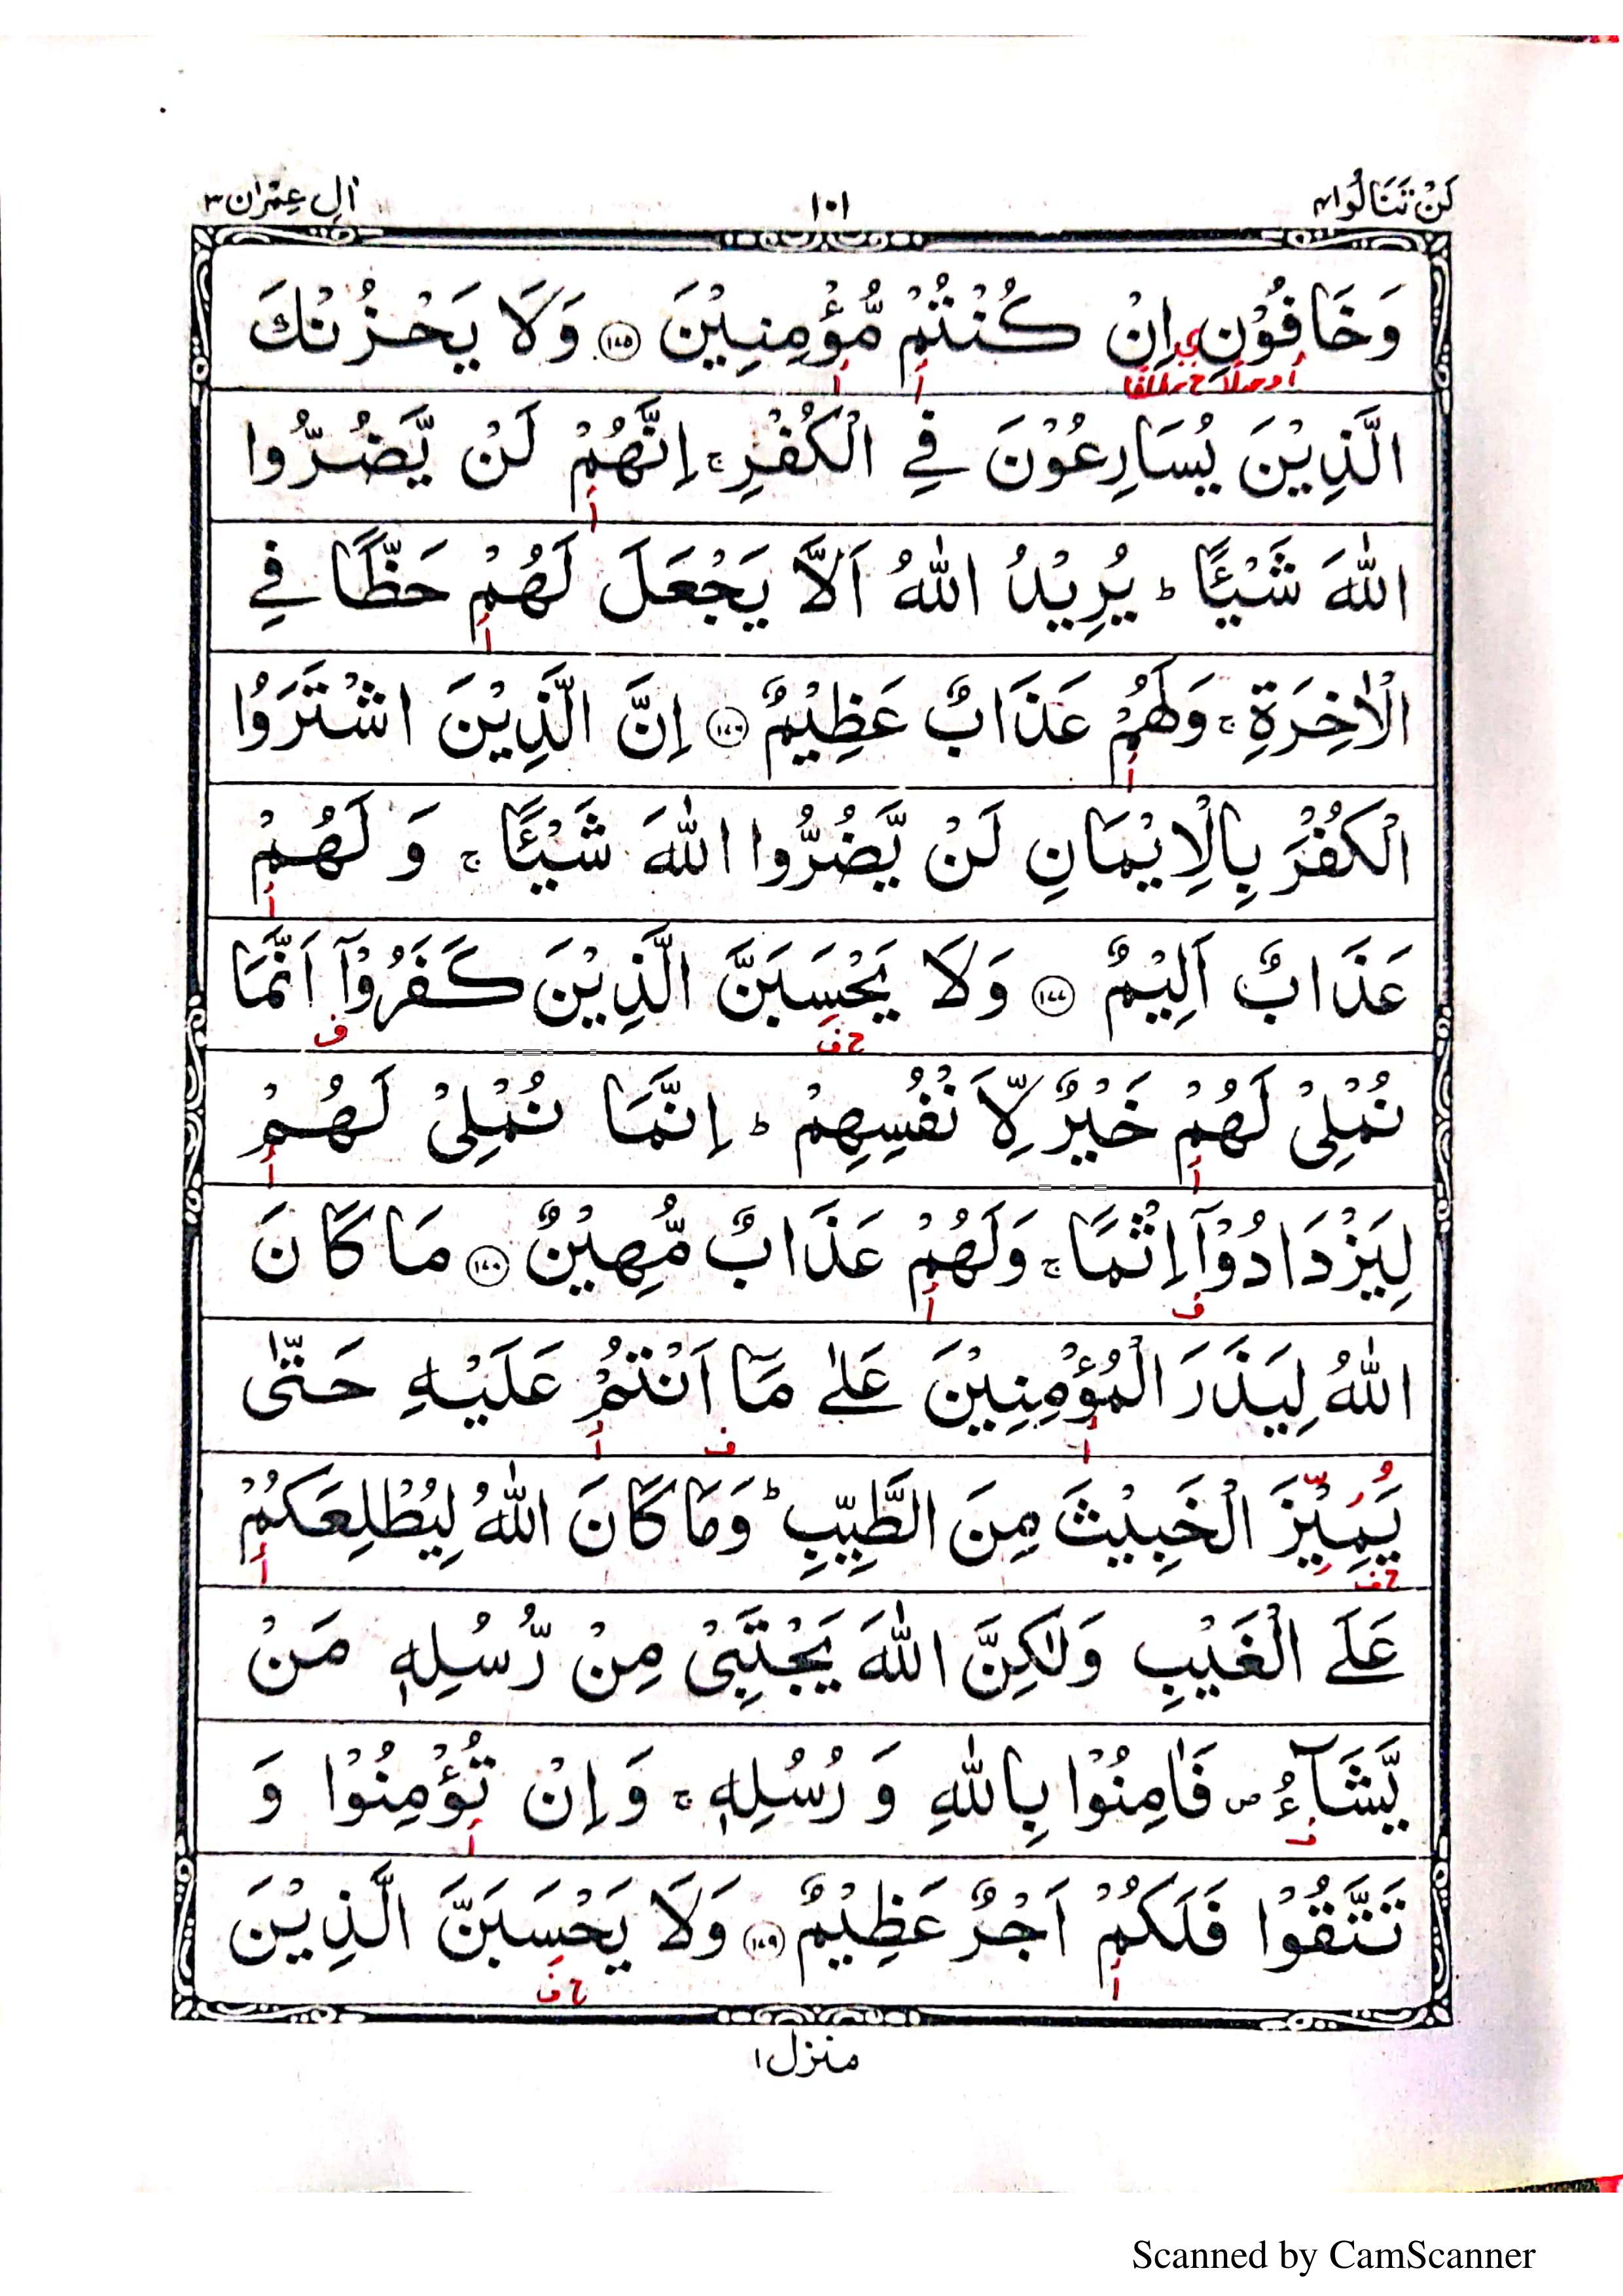 لَنْ تَنَالُوا٤
١٠١
اٰلِ عِمْرٰن٣
وَخَافُوْنِ اِنْ كُنْتُمْ مُّؤْمِنِيْنَ ١٧٥ وَلَا يَحْزُنْكَ
الَّذِيْنَ يُسَارِعُوْنَ فِي الْكُفْرِ ۚ اِنَّهُمْ لَنْ يَّضُرُّوا
اللّٰهَ شَيْـًٔا ؕ يُرِيْدُ اللّٰهُ اَلَّا يَجْعَلَ لَهُمْ حَظًّا فِي
الْاٰخِرَةِ ۚ وَلَهُمْ عَذَابٌ عَظِيْمٌ ١٧٦ اِنَّ الَّذِيْنَ اشْتَرَوُا
الْكُفْرَ بِالْاِيْمَانِ لَنْ يَّضُرُّوا اللّٰهَ شَيْـًٔا ۚ وَ لَهُمْ
عَذَابٌ اَلِيْمٌ ١٧٧ وَلَا يَحْسَبَنَّ الَّذِيْنَ كَفَرُوْۤا اَنَّمَا
نُمْلِيْ لَهُمْ خَيْرٌ لِّاَنْفُسِهِمْ ؕ اِنَّمَا نُمْلِيْ لَهُمْ
لِيَزْدَادُوْۤا اِثْمًا ۚ وَلَهُمْ عَذَابٌ مُّهِيْنٌ ١٧٨ مَا كَانَ
اللّٰهُ لِيَذَرَ الْمُؤْمِنِيْنَ عَلٰى مَاۤ اَنْتُمْ عَلَيْهِ حَتّٰى
يَمِيْزَ الْخَبِيْثَ مِنَ الطَّيِّبِ ؕ وَمَا كَانَ اللّٰهُ لِيُطْلِعَكُمْ
عَلَى الْغَيْبِ وَلٰكِنَّ اللّٰهَ يَجْتَبِيْ مِنْ رُّسُلِهٖ مَنْ
يَّشَآءُ ۪ فَاٰمِنُوْا بِاللّٰهِ وَ رُسُلِهٖ ۚ وَاِنْ تُؤْمِنُوْا وَ
تَتَّقُوْا فَلَكُمْ اَجْرٌ عَظِيْمٌ ١٧٩ وَلَا يَحْسَبَنَّ الَّذِيْنَ
منزل١
Scanned by CamScanner